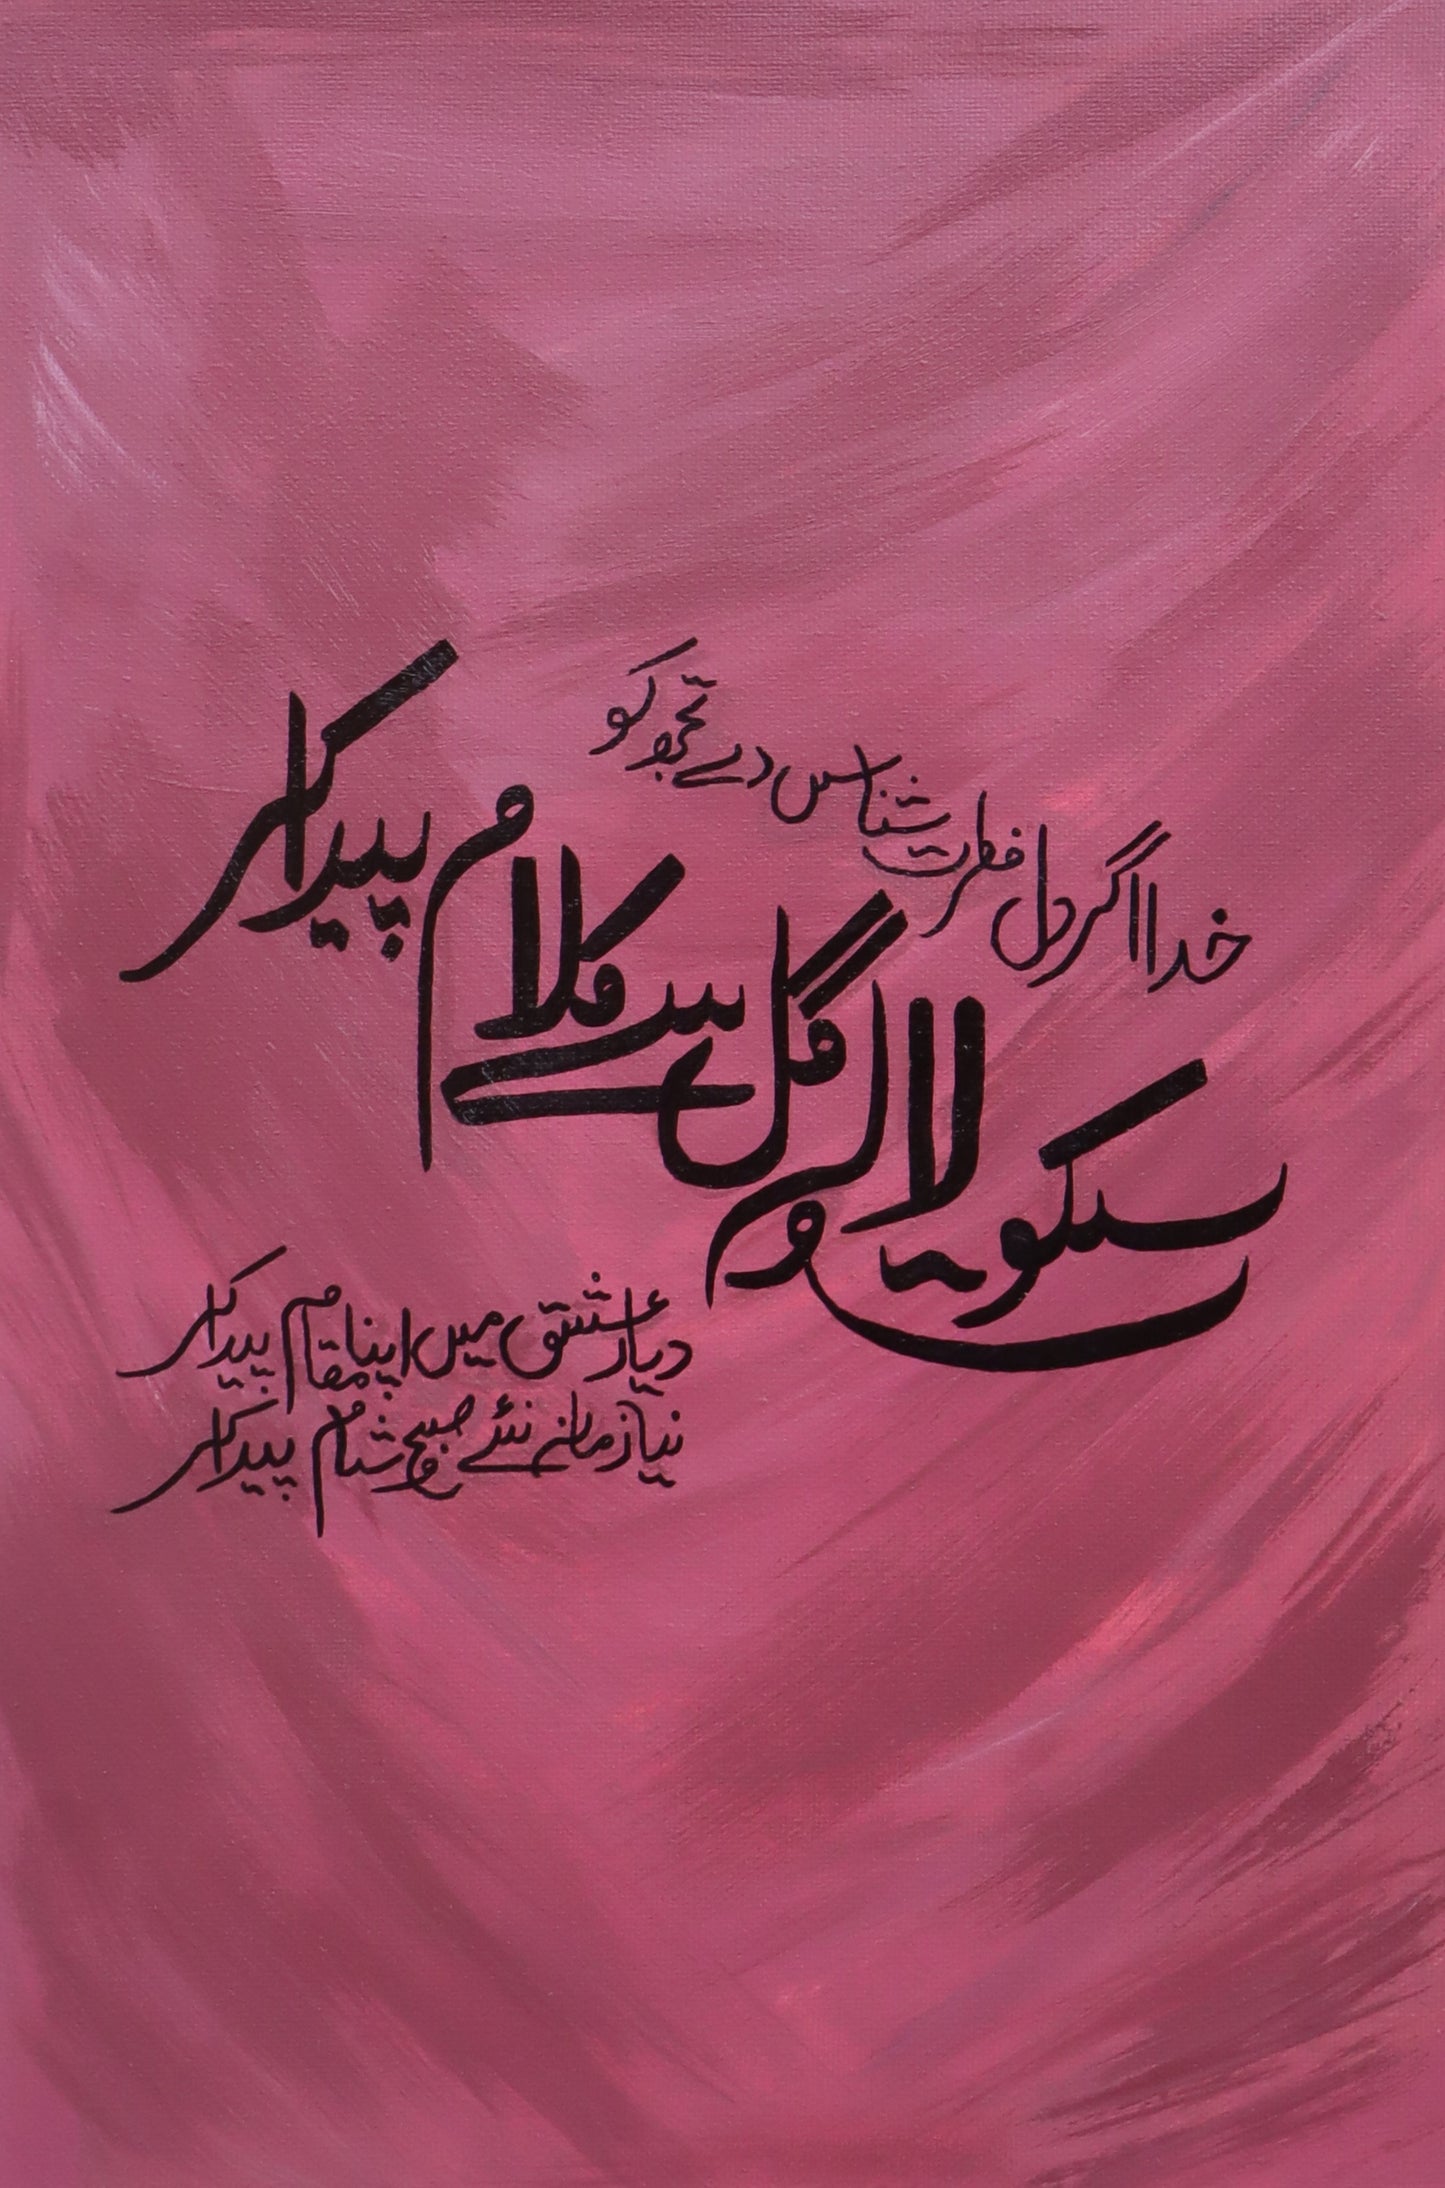 خدا اگر دل فطرت شناس دے تجھ کو
سکوت لالہ و گل سے کلام پیدا کر
دیار عشق میں اپنا مقام پیدا کر
نیا زمانہ نئے صبح و شام پیدا کر